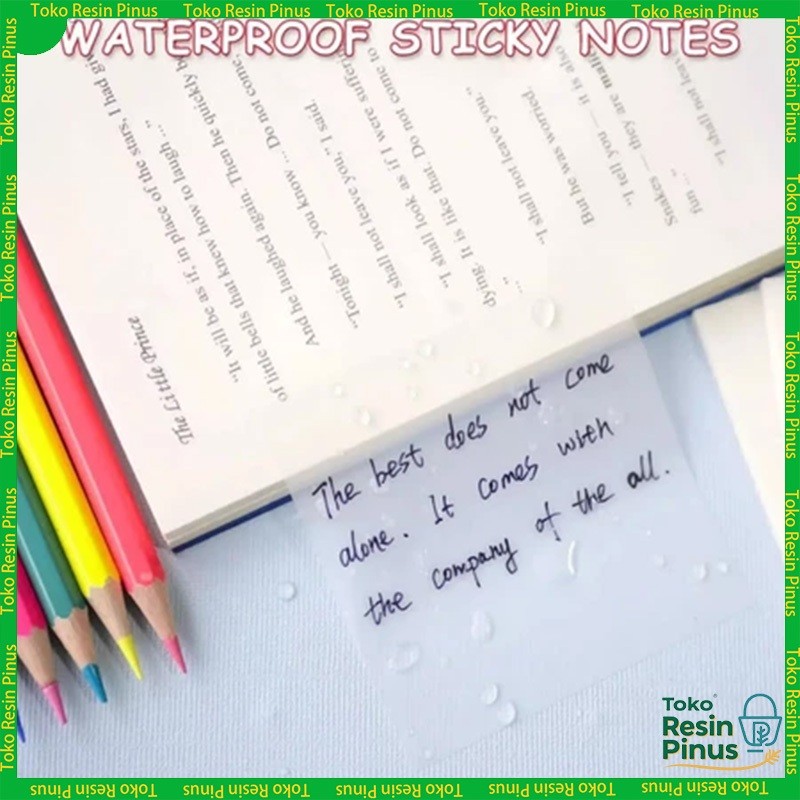 Toko Resin Pinus Toko Resin Pinus Toko Resin Pinus Toko Resin Pinus Toko Resin Pinus
WATERPROOF STICKY NOTES
The Little Prince
"It will be as if, in place of the stars, I had
of little bells that knew how to laugh ..."
And he laughed again. Then he quickly
"Tonight — you know ... Do not come
"I shall not leave you," I said.
"I shall look as if I were
dying. It is like that. Do not come to
..."
"I shall not leave you."
But he was worried.
"I tell you — it is also
Snakes — they are
fun ..."
"I shall not leave
The best does not come
alone. It comes with
the company of the all.
Toko
Resin
Pinus
Toko Resin Pinus Toko Resin Pinus Toko Resin Pinus Toko Resin Pinus Toko Resin Pinus
Toko Resin Pinus Toko Resin Pinus Toko Resin Pinus Toko Resin Pinus Toko Resin Pinus
Toko Resin Pinus Toko Resin Pinus Toko Resin Pinus Toko Resin Pinus Toko Resin Pinus